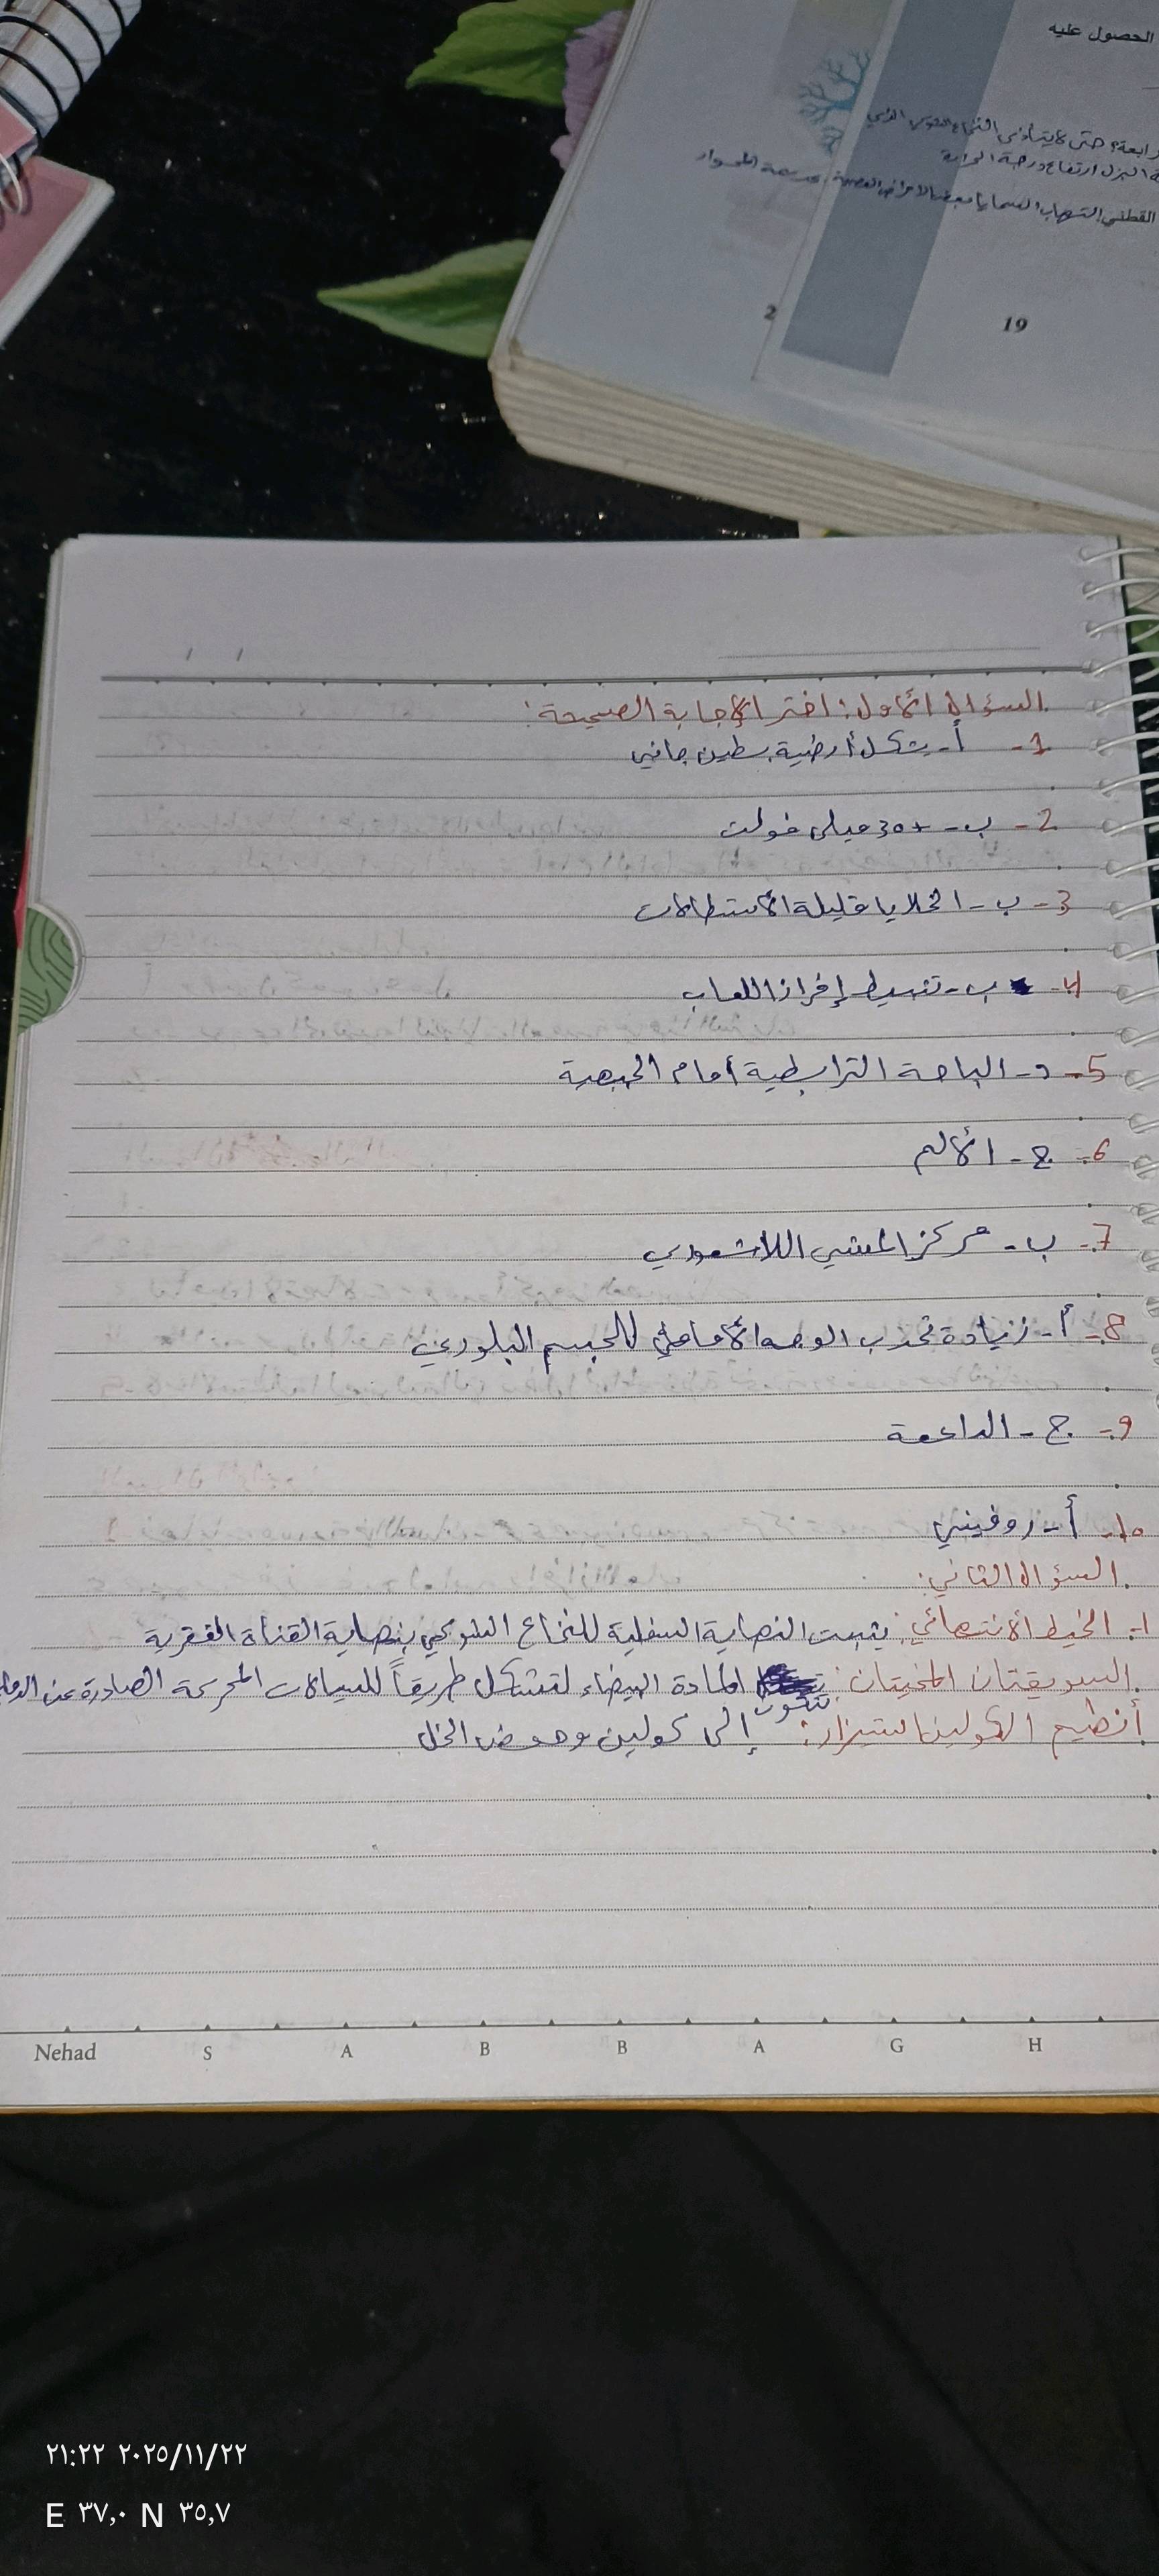 الحصول عليه
رابعة؟ حتى لايتأذى النخاع الشوكي الذي
البزل ارتفاع درجة الحرارة
القطني التهاب السحايا بعض الأمراض العصبية
2
19
السؤال الأول: اختر الإجابة الصحيحة:
1- أ- يشكل أرضية بطين جانبي
2- ب- +30 ميلي فولت
3- ب- الخلايا قليلة الاستطالات
4- ب- تنشيط إفراز اللعاب
5- د- الباحة الترابطية أمام الجبهية
6- ج- الألم
7- ب- مركز المشي اللاشعوري
8- أ- زيادة تحدب الوجه الأمامي للجسم البلوري
9- ج- الداعمة
10- أ- روفيني
السؤال الثاني:
1- الخيط الانتهائي: يثبت النهاية السفلية للنخاع الشوكي بنهاية القناة الفقرية
السويقتان المخيتان: تتكون المادة البيضاء لتشكل طريقاً للسيالات المحركة الصادرة عن الدماغ
أنظيم الكولين استيراز: إلى كولين وحمض الخل
Nehad S A B B A G H
٢١:٢٢ ٢٠٢٥/١١/٢٢
E ٣٧,٠ N ٣٥,٧